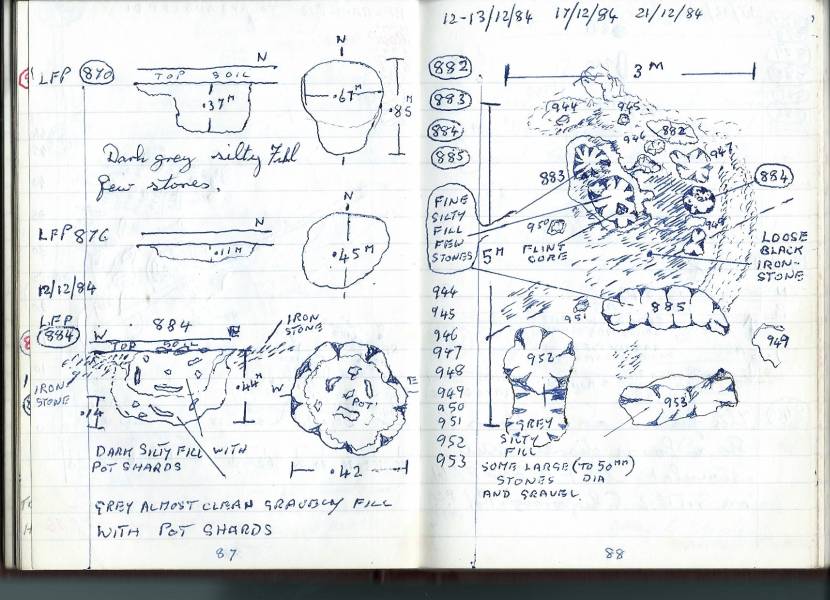 LFP 870
N
TOP SOIL
.37M
N
.67M
.85M
Dark grey silty Fill
few stones.
LFP 876
N
.11M
N
.45M
12/12/84
LFP
884
884
W
E
TOP SOIL
IRON
STONE
IRON
STONE
.14
.44M
W
E
POT
.42
DARK SILTY FILL WITH
POT SHARDS
GREY ALMOST CLEAN GRAVELLY FILL
WITH POT SHARDS
87
12-13/12/84 17/12/84 21/12/84
882
883
884
885
3M
944
945
946
882
947
883
884
948
950
FLINT
CORE
FINE
SILTY
FILL
FEW
STONES
5M
LOOSE
BLACK
IRON-
STONE
885
951
949
944
945
946
947
948
949
950
951
952
953
952
953
GREY
SILTY
FILL
SOME LARGE (TO 50MM)
STONES DIA
AND GRAVEL
88